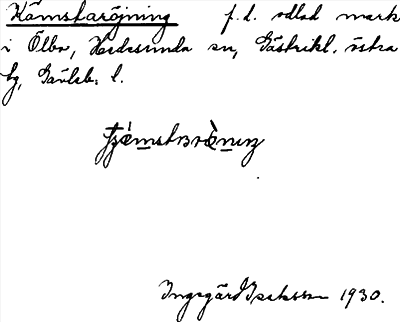 Kämstaröjning f.d. odlad mark
i Ölbo, Hedesunda sn, Gästrikl. östra
tg, Gävleb. l.
Ingegärd Isaksson 1930.